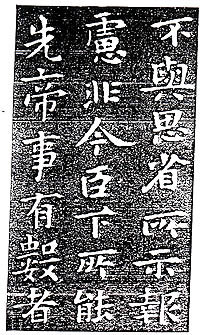 不與思省所示報
慮非今臣下所能
先帝事有數者